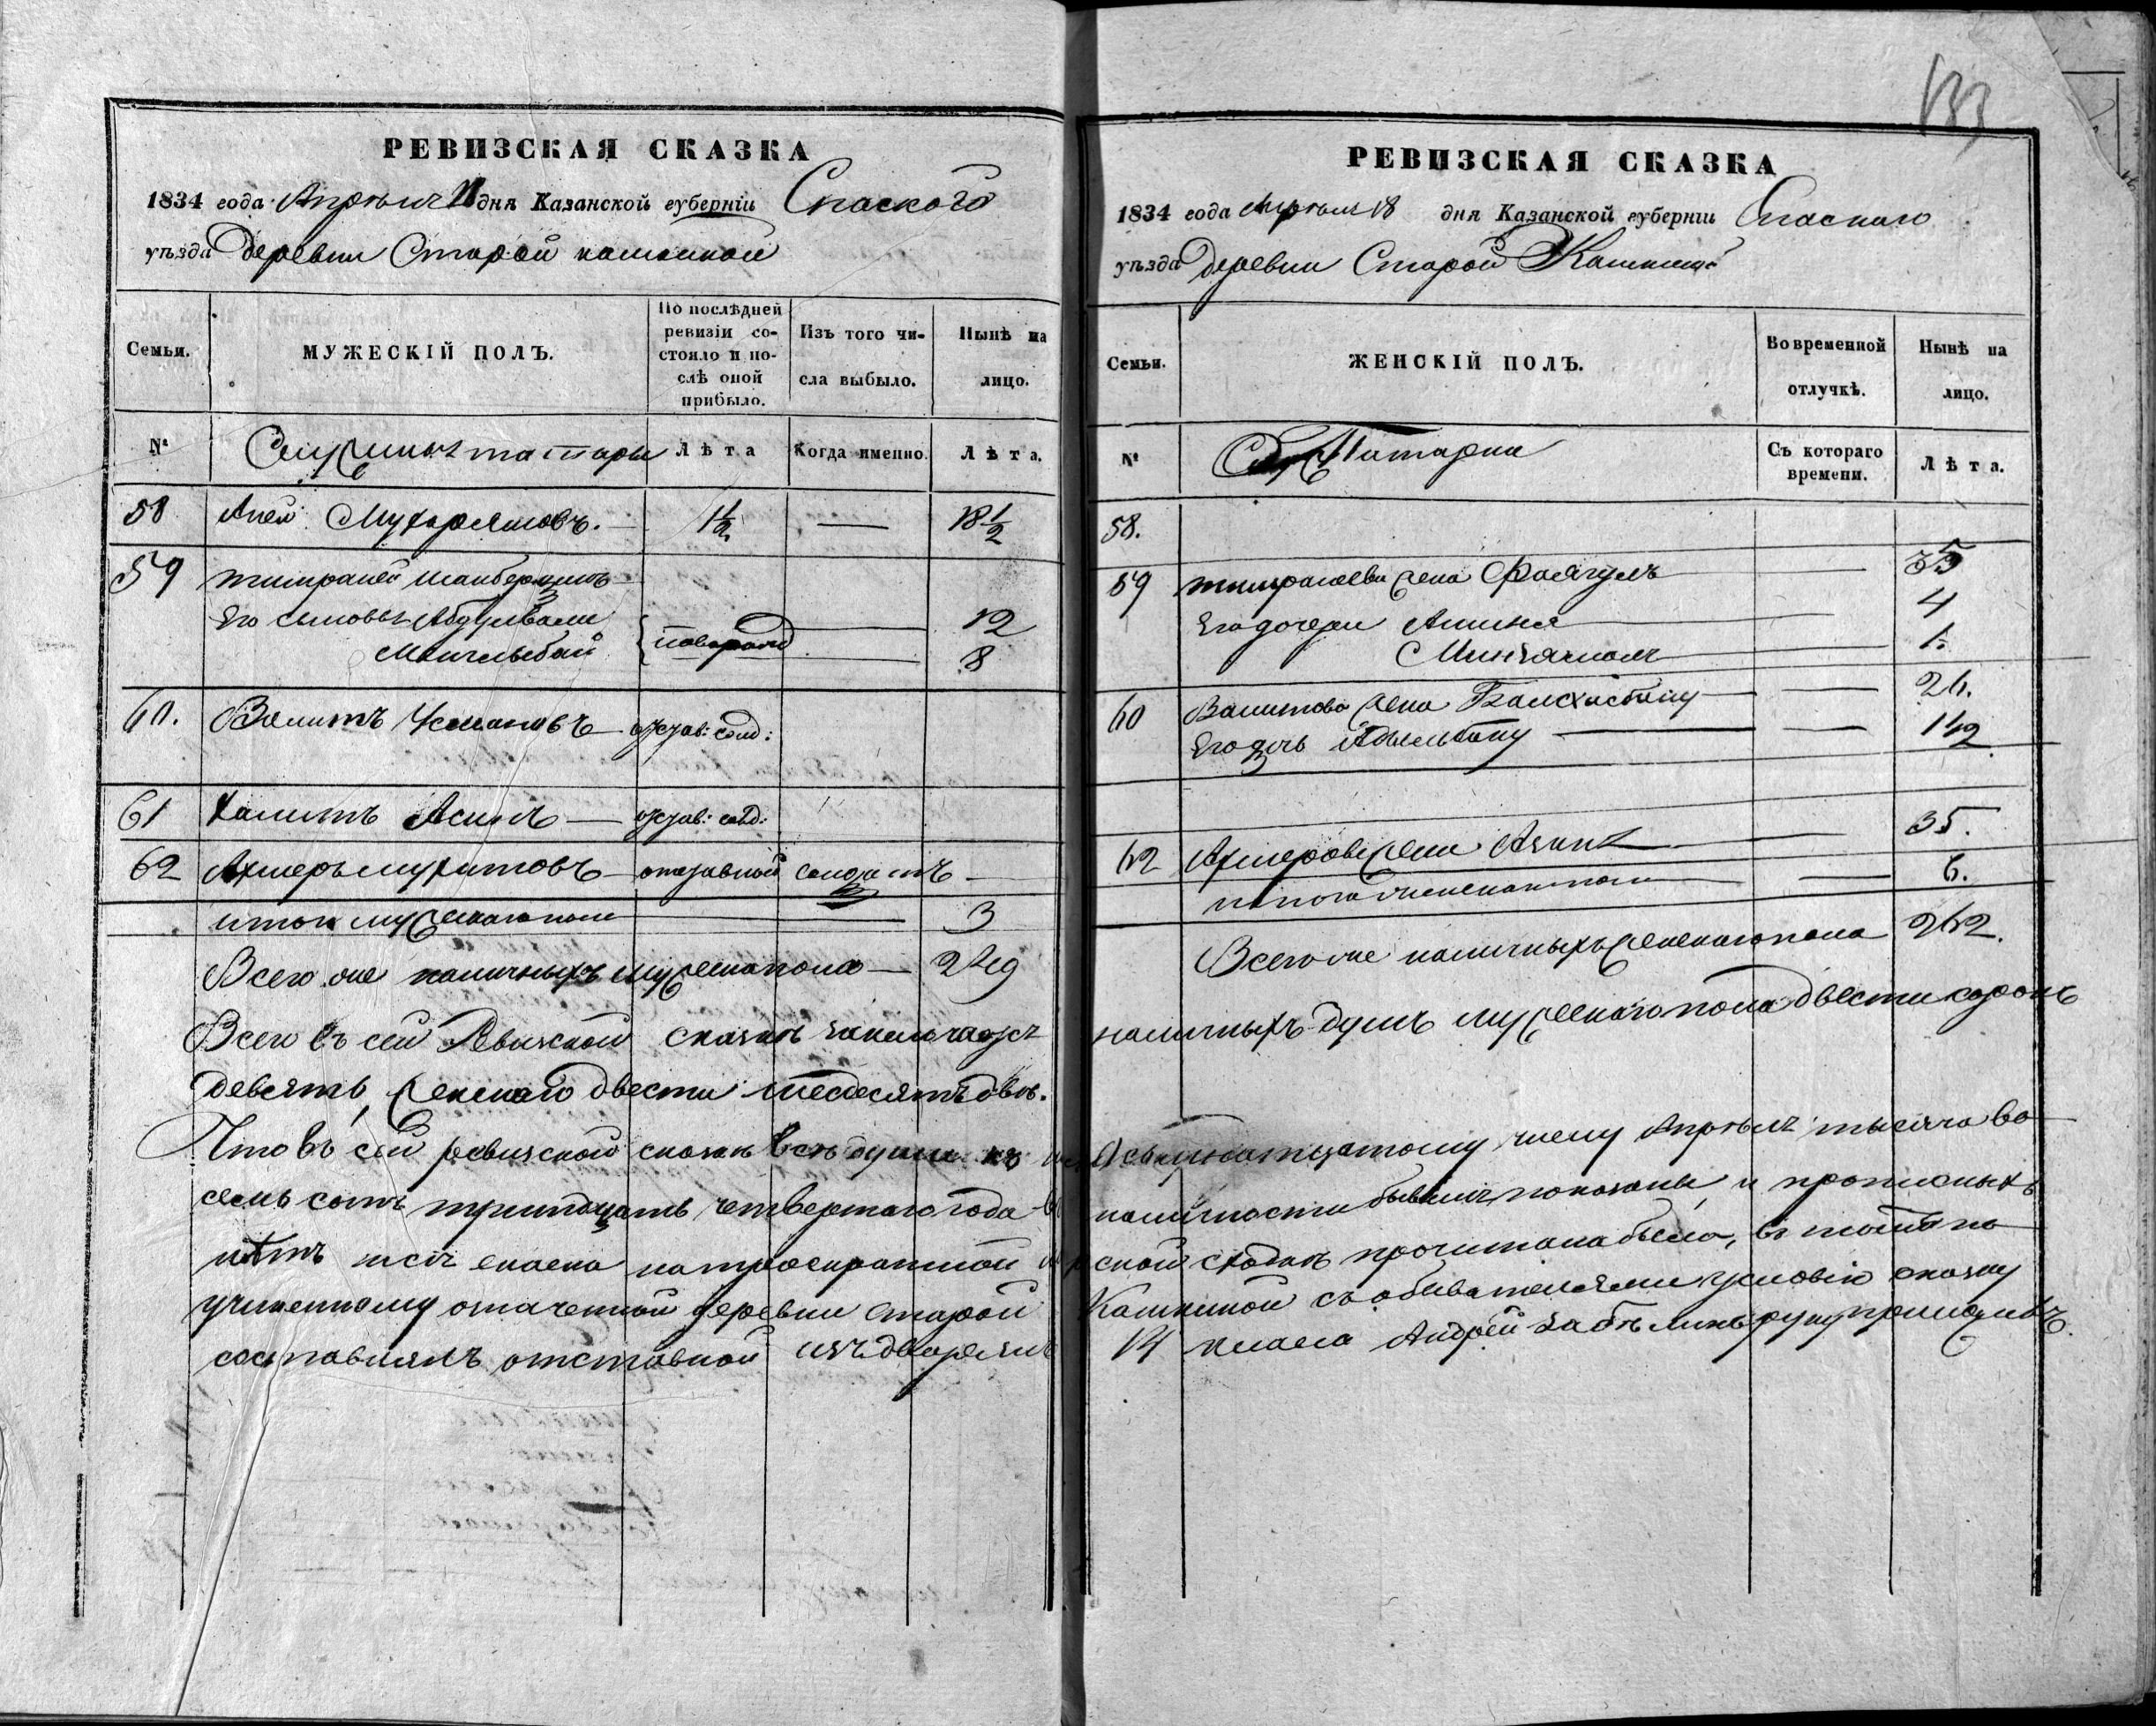 133
РЕВИЗСКАЯ СКАЗКА
1834 года Апреля 18 дня Казанской губернiи Спаского
уѣзда деревни Старой камкиной
Семьи.
МУЖЕСКIЙ ПОЛЪ.
По послѣдней ревизiи состояло и послѣ оной прибыло.
Изъ того числа выбыло.
Нынѣ на лицо.
№
татары
Лѣта
Когда именно.
Лѣта.
58 Мухарямовъ. 1½ — 18½
59
Его сыновья Абдулвали 12
8
60. Валитъ Усмановъ отстав: солд:
61 Халитъ Асинъ — отстав: солд:
62 Ахмеръ мухитовъ — отставной солдатъ —
итого мужескаго пола 3
Всего оне наличныхъ мужеска пола — 249
РЕВИЗСКАЯ СКАЗКА
1834 года Апреля 18 дня Казанской губернiи Спаскаго
уѣзда деревни Старой Камкиной
Семьи.
ЖЕНСКIЙ ПОЛЪ.
Во временной отлучкѣ.
Нынѣ на лицо.
№
татарки
Съ котораго времени.
Лѣта.
58.
59 жена 35
Его дочери Амина 4
1.
60 Валитова жена 26.
Его дочь 1½
62 Ахмерова жена 35.
итого женска пола 6.
Всего оне наличныхъ женскаго пола 262.
Всего въ сей Ревизской сказкѣ заключается наличныхъ душъ мужескаго пола двести сорокъ
девять, женскаго двести шесдесятъ двѣ.
Что въ сей ревизской сказкѣ всѣ души къ осьмнатцатому числу Апреля тысяча во
семь сотъ тритцать четвертаго года въ наличности бывшiя показаны и прописныхъ
нѣтъ и сiя скаска на троекратной мирской сходкѣ прочитана была, въ томъ по
учиненному означенной деревни старой Камкиной съ обывателями условiю скаску
составлялъ отставной изъ дворянъ 14 класа Андрей Забѣлинъ руку приложилъ.